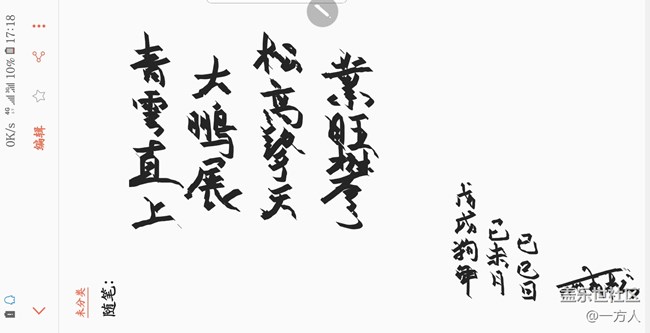 0K/s 10% 17:18
编辑
未分类
随笔:
業旺攀
松高擎天
大鵬展
青雲直上
戊戌狗年
己未月
己巳日
盖乐世社区
@一方人